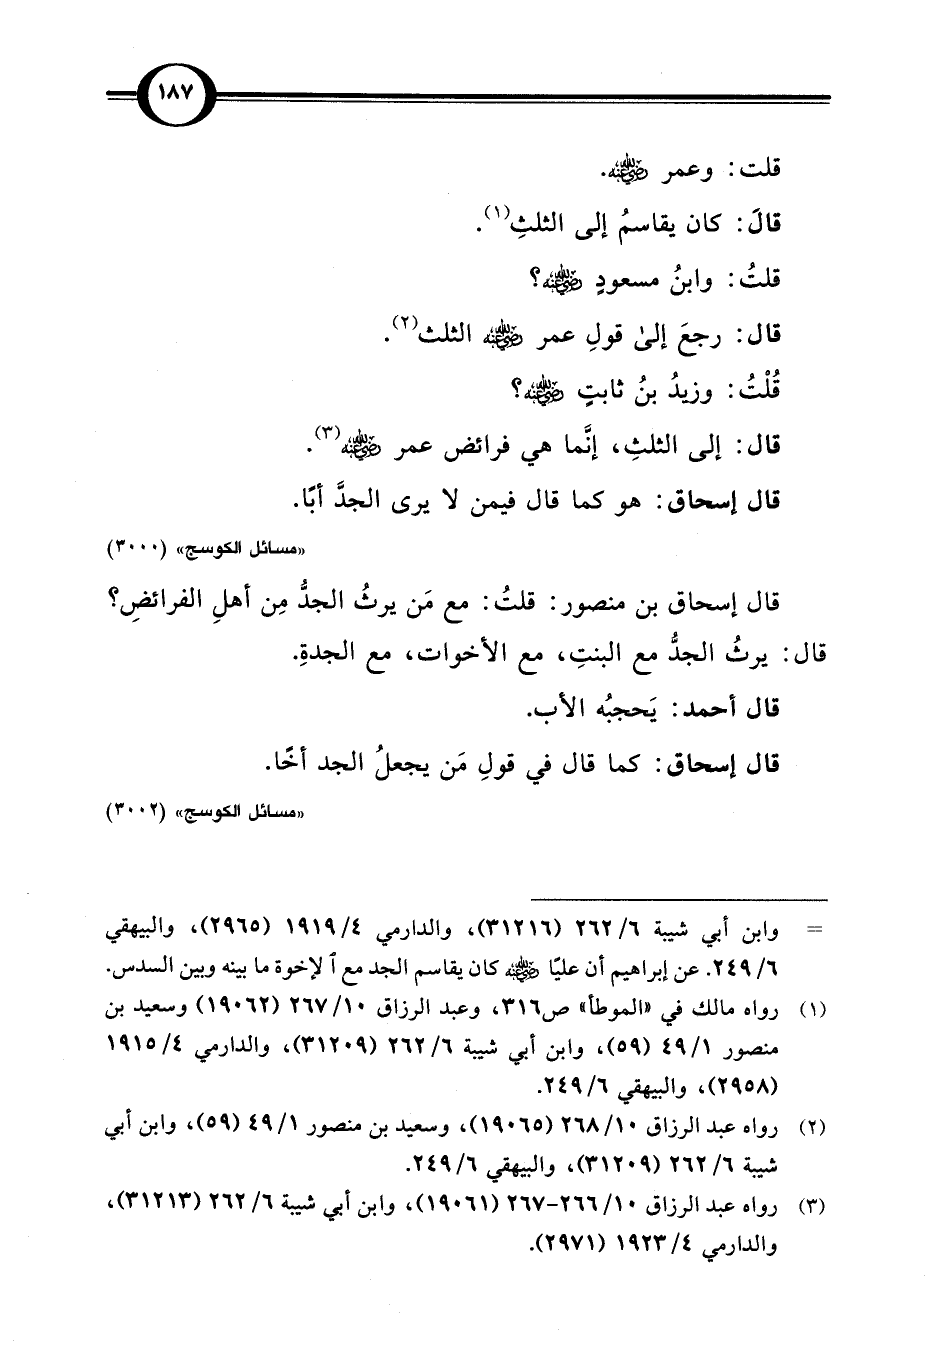 ١٨٧
قلت: وعمر رضي الله عنه.
قالَ: كان يقاسمُ إلى الثلثِ(١).
قلتُ: وابنُ مسعودٍ رضي الله عنه؟
قال: رجعَ إلىٰ قولِ عمر رضي الله عنه الثلث(٢).
قُلْتُ: وزيدُ بنُ ثابتٍ رضي الله عنه؟
قال: إلى الثلثِ، إنَّما هي فرائض عمر رضي الله عنه(٣).
قال إسحاق: هو كما قال فيمن لا يرى الجدَّ أبًا.
«مسائل الكوسج» (٣٠٠٠)
قال إسحاق بن منصور: قلتُ: مع مَن يرثُ الجدُّ مِن أهلِ الفرائضِ؟
قال: يرثُ الجدُّ مع البنتِ، مع الأخوات، مع الجدةِ.
قال أحمد: يَحجبُه الأب.
قال إسحاق: كما قال في قولِ مَن يجعلُ الجد أخًا.
«مسائل الكوسج» (٣٠٠٢)
= وابن أبي شيبة ٦/ ٢٦٢ (٣١٢١٦)، والدارمي ٤/ ١٩١٩ (٢٩٦٥)، والبيهقي
٦/ ٢٤٩. عن إبراهيم أن عليًا رضي الله عنه كان يقاسم الجد مع آ لإخوة ما بينه وبين السدس.
(١) رواه مالك في «الموطأ» ص٣١٦، وعبد الرزاق ١٠/ ٢٦٧ (١٩٠٦٢) وسعيد بن
منصور ١/ ٤٩ (٥٩)، وابن أبي شيبة ٦/ ٢٦٢ (٣١٢٠٩)، والدارمي ٤/ ١٩١٥
(٢٩٥٨)، والبيهقي ٦/ ٢٤٩.
(٢) رواه عبد الرزاق ١٠/ ٢٦٨ (١٩٠٦٥)، وسعيد بن منصور ١/ ٤٩ (٥٩)، وابن أبي
شيبة ٦/ ٢٦٢ (٣١٢٠٩)، والبيهقي ٦/ ٢٤٩.
(٣) رواه عبد الرزاق ١٠/ ٢٦٦-٢٦٧ (١٩٠٦١)، وابن أبي شيبة ٦/ ٢٦٢ (٣١٢١٣)،
والدارمي ٤/ ١٩٢٣ (٢٩٧١).